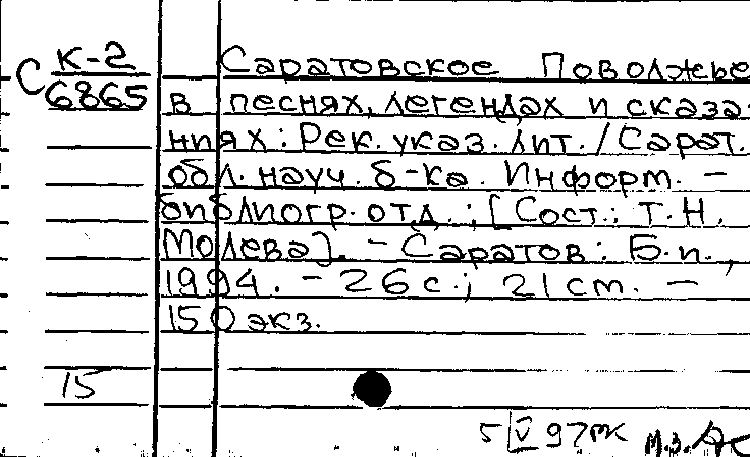 С К-2
6865
Саратовское Поволжье
в песнях, легендах и сказа-
ниях: Рек. указ. лит. / Сарат.
обл. науч. б-ка. Информ. –
библиогр. отд.; [Сост.: Т.Н.
Молева]. – Саратов: Б.и.,
1994. – 26 с.; 21 cm. –
150 экз.
15
5/V 97
м.з.